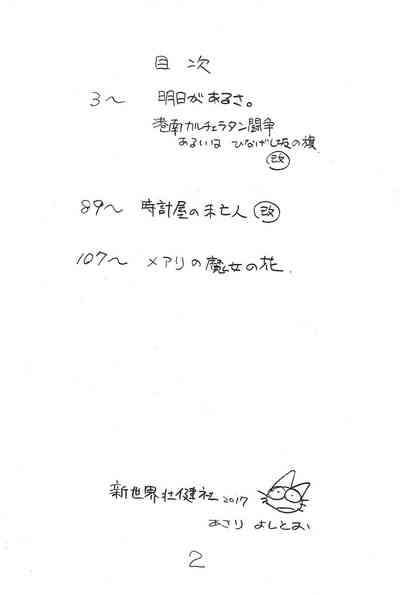 目次
3〜 明日があるさ。
港南カルチェラタン闘争
あるいは ひなげし坂の複
改
89〜 時計屋の未亡人 改
107〜 メアリの魔女の花.
新世界壮健社 2017
あさりよしとお
2